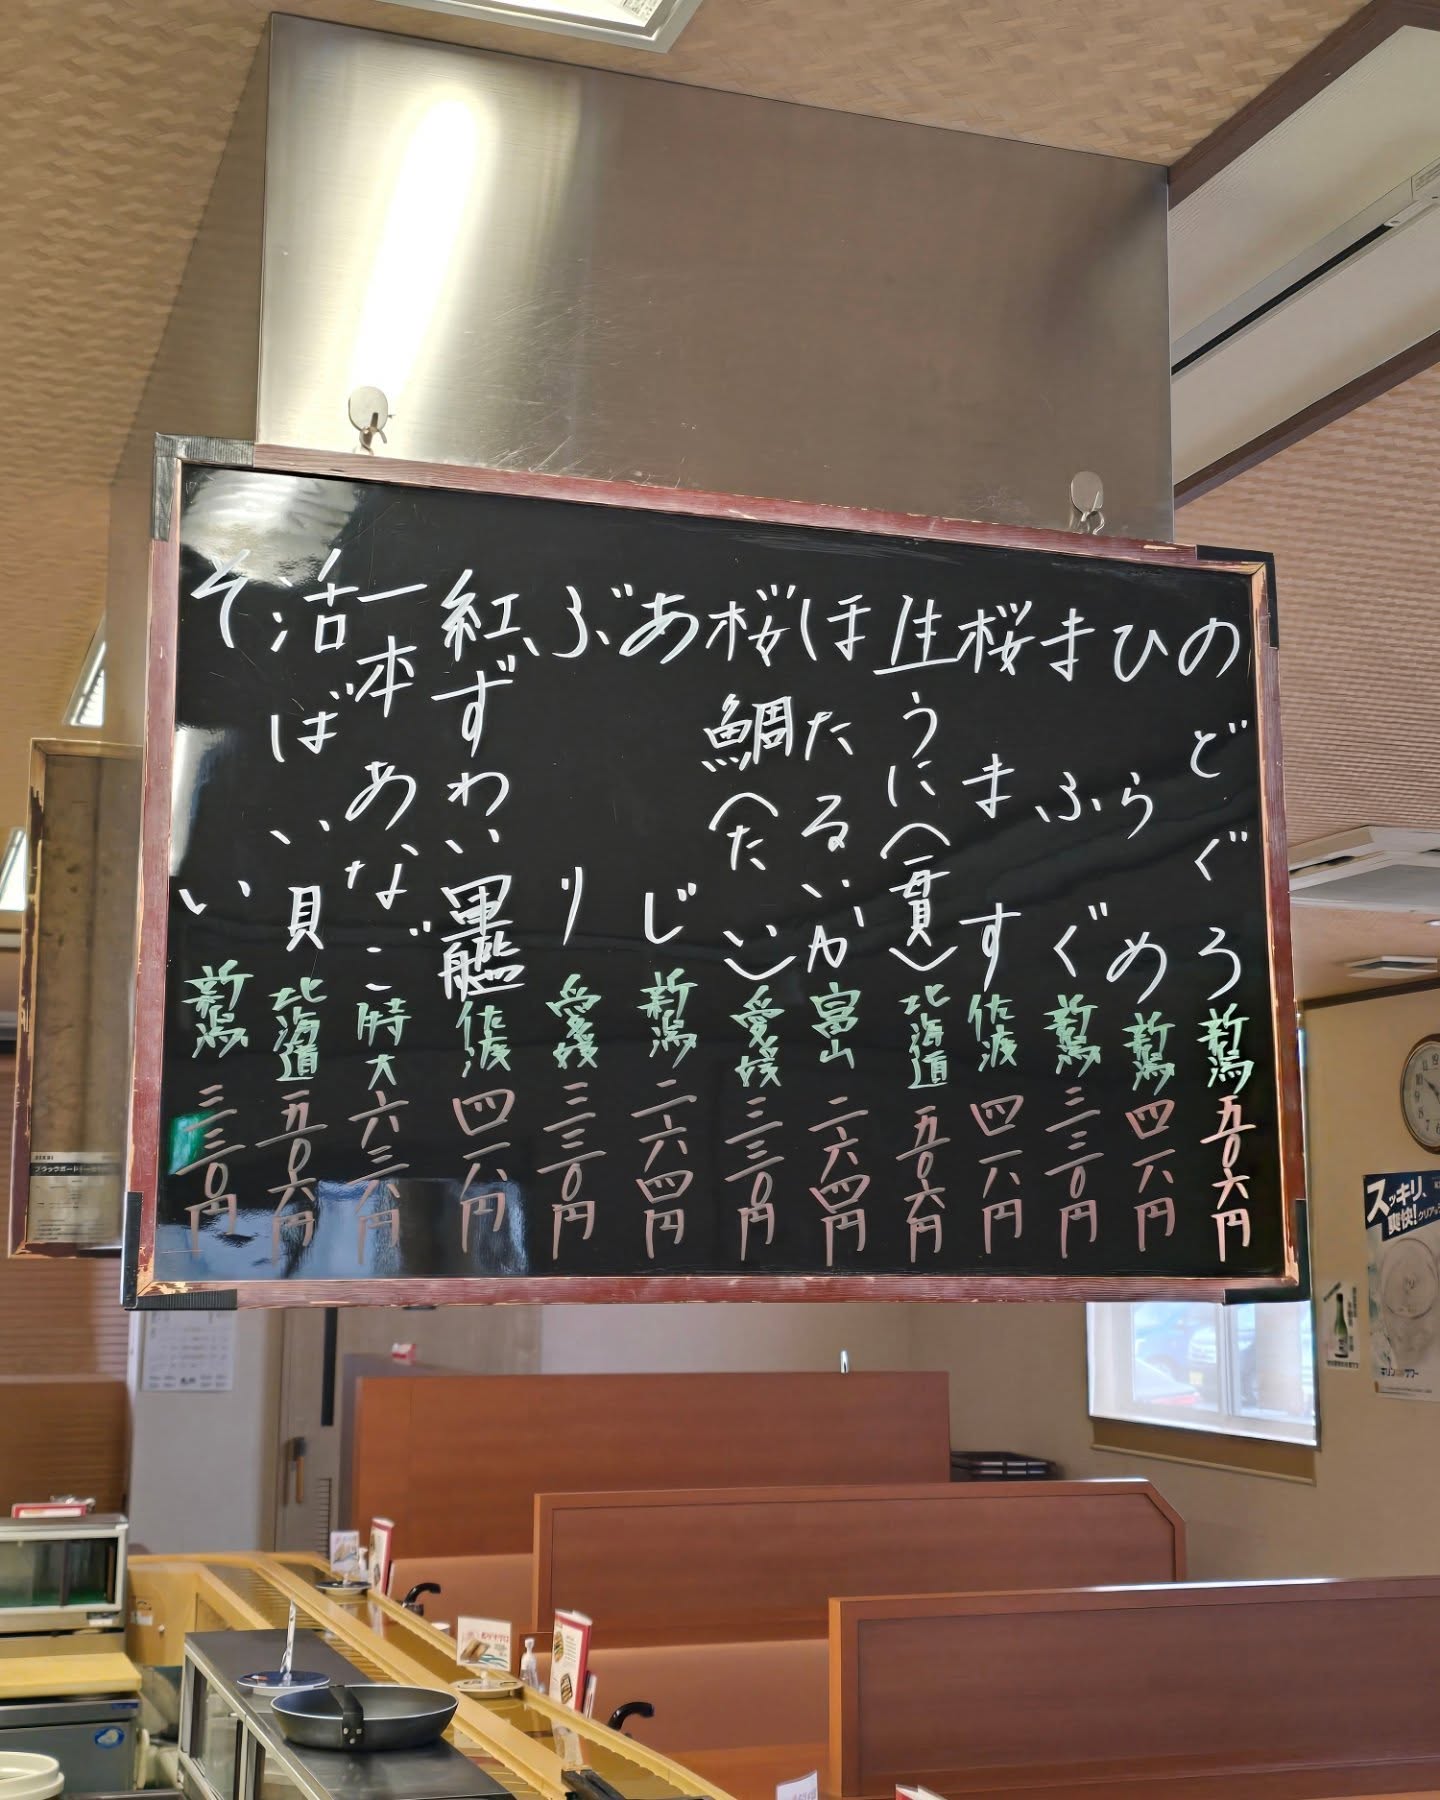 のどぐろ 新潟 五〇六円
ひらめ 新潟 四一八円
まふぐ 新潟 三三〇円
桜ます 佐渡 四一八円
生うに(一貫) 北海道 五〇六円
ほたるいか 富山 二六四円
桜鯛(たい) 愛媛 三三〇円
あじ 新潟 二六四円
ぶり 愛媛 三三〇円
紅ずわい軍艦 佐渡 四一八円
一本あなご 特大 六三八円
活ばい貝 北海道 五〇六円
そい 新潟 三三〇円
スッキリ、
爽快!